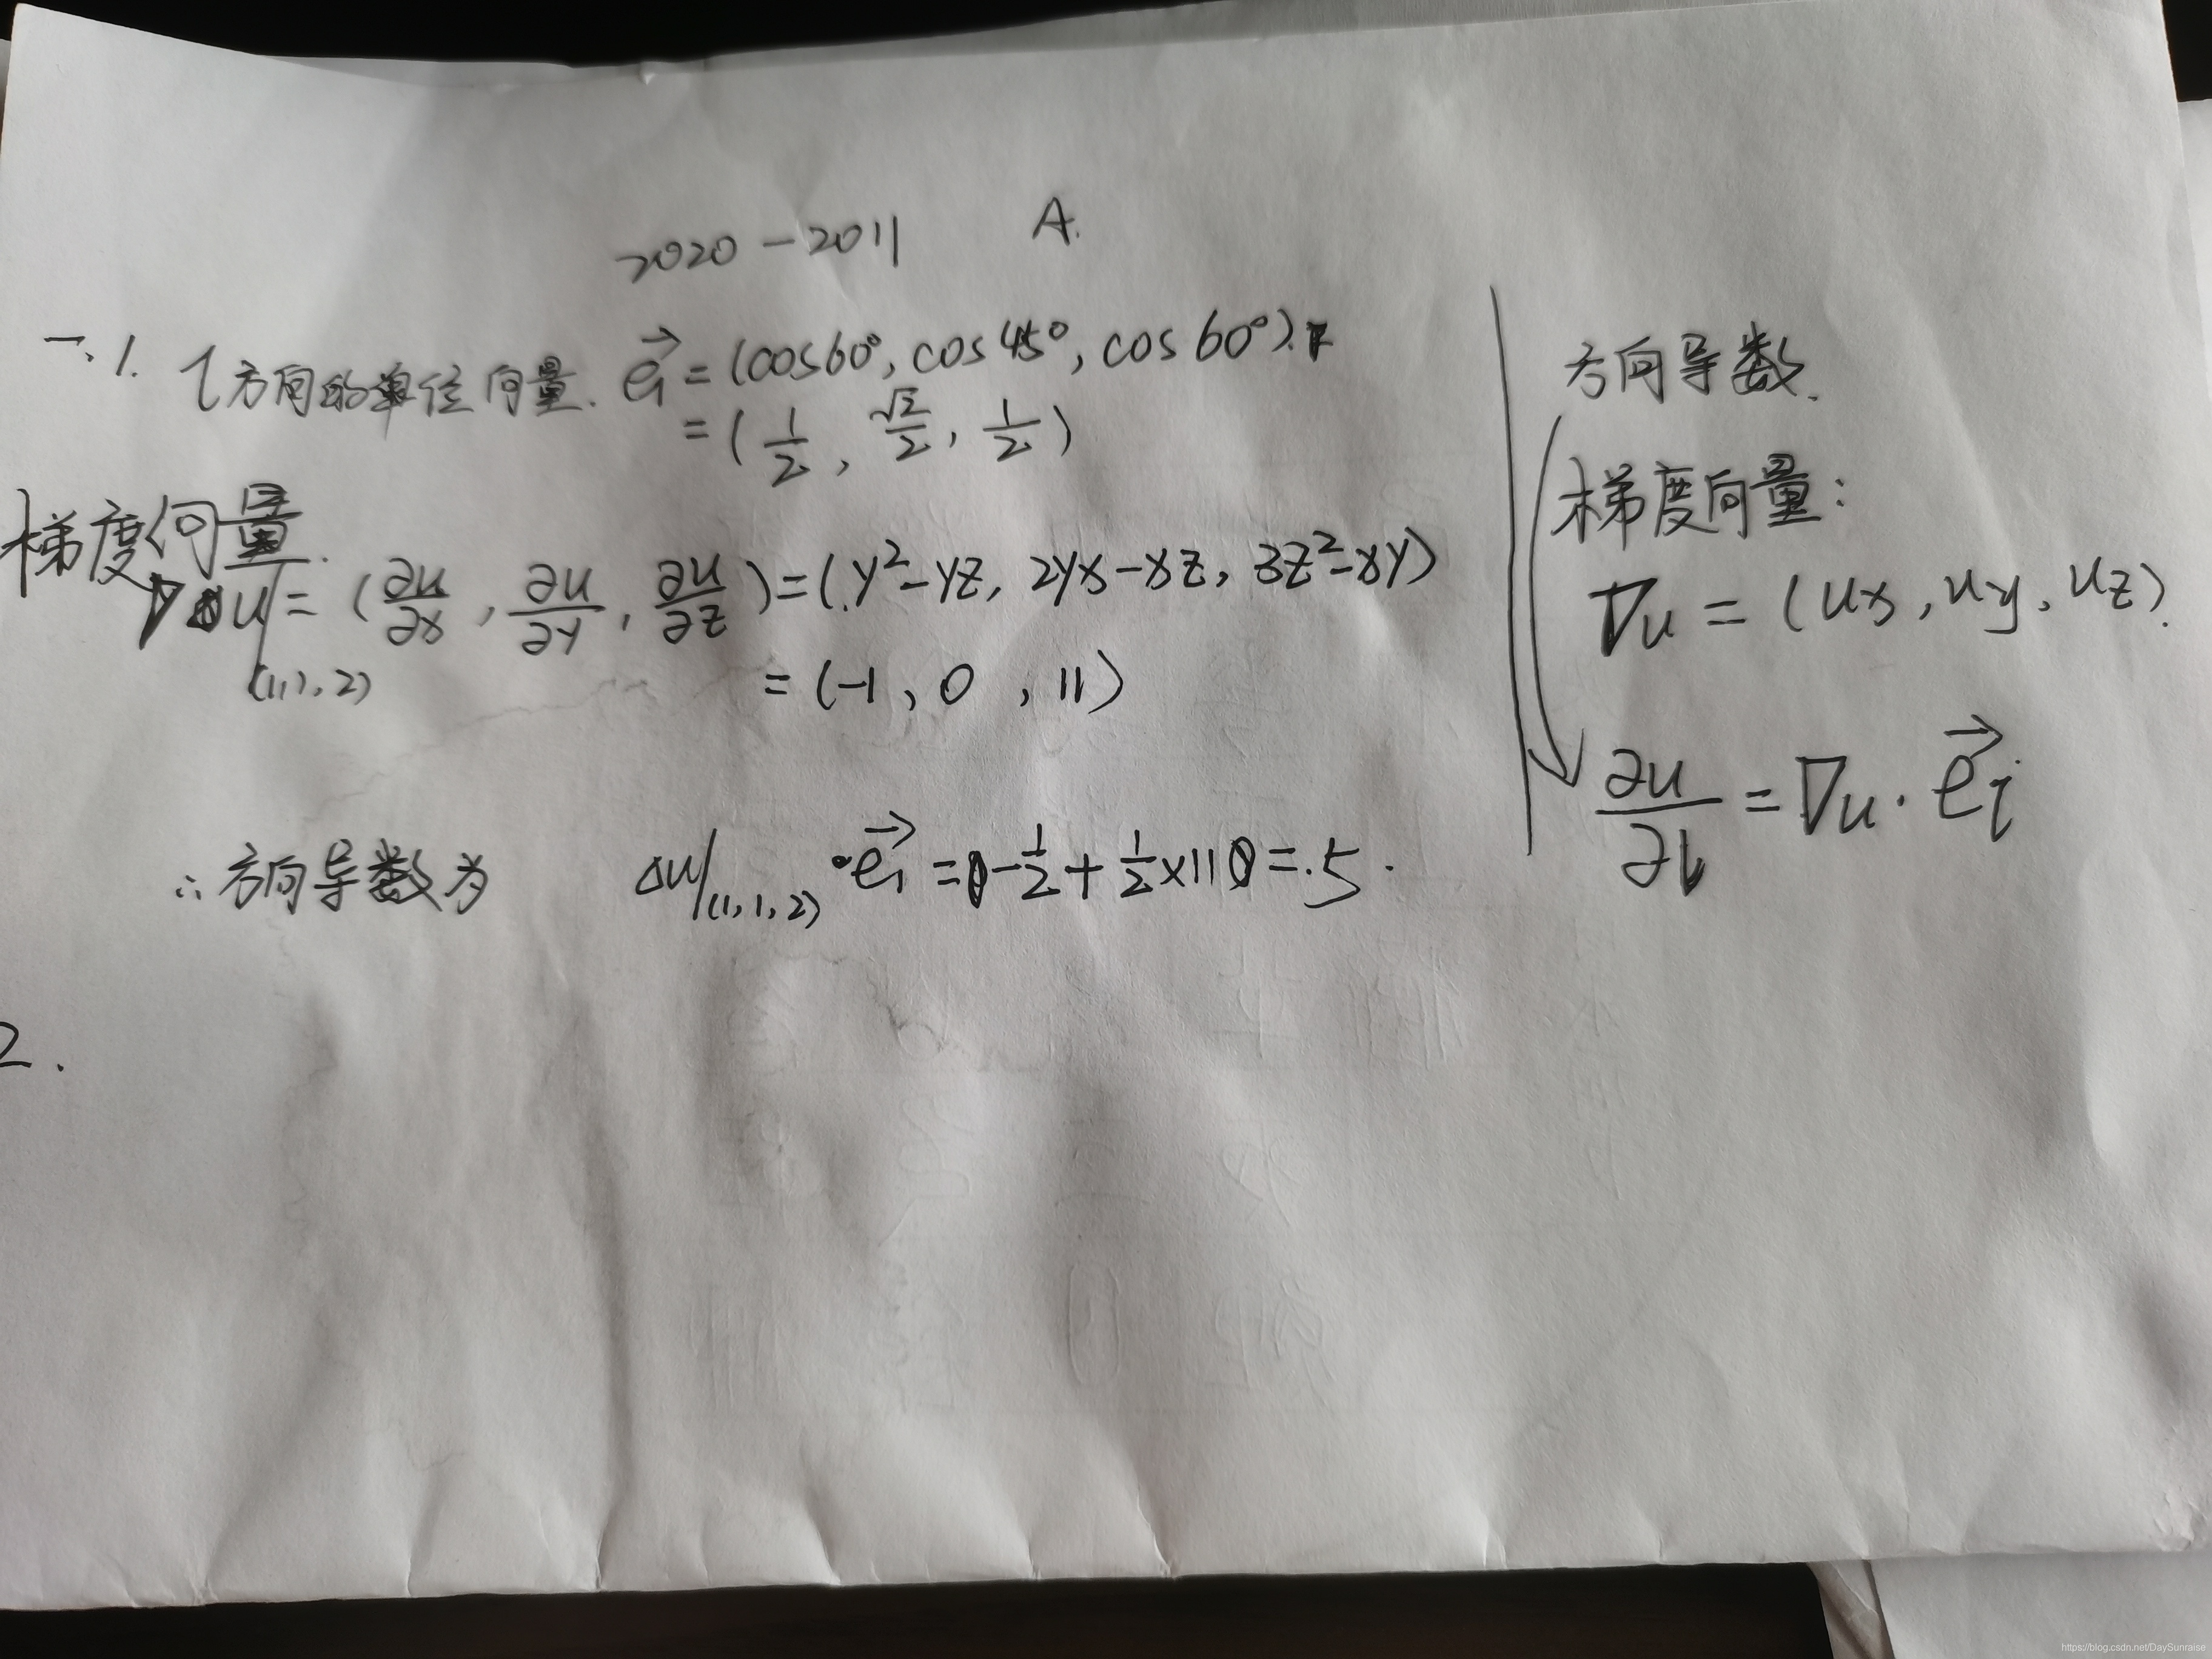 2020-2011 A.
一.1. l方向的单位向量. e₁⃗ = (cos60°, cos45°, cos60°).
= (1/2, √2/2, 1/2)
梯度向量.
∇u|(1,1,2) = (∂u/∂x, ∂u/∂y, ∂u/∂z) = (y²-yz, 2yx-xz, 3z²-xy)
= (-1, 0, 11)
∴方向导数为 Δu|(1,1,2) · e₁⃗ = -1/2 + 1/2×11 = 5.
2.
方向导数.
梯度向量:
∇u = (ux, uy, uz).
∂u/∂l = ∇u · eᵢ⃗
https://blog.csdn.net/DaySunraise